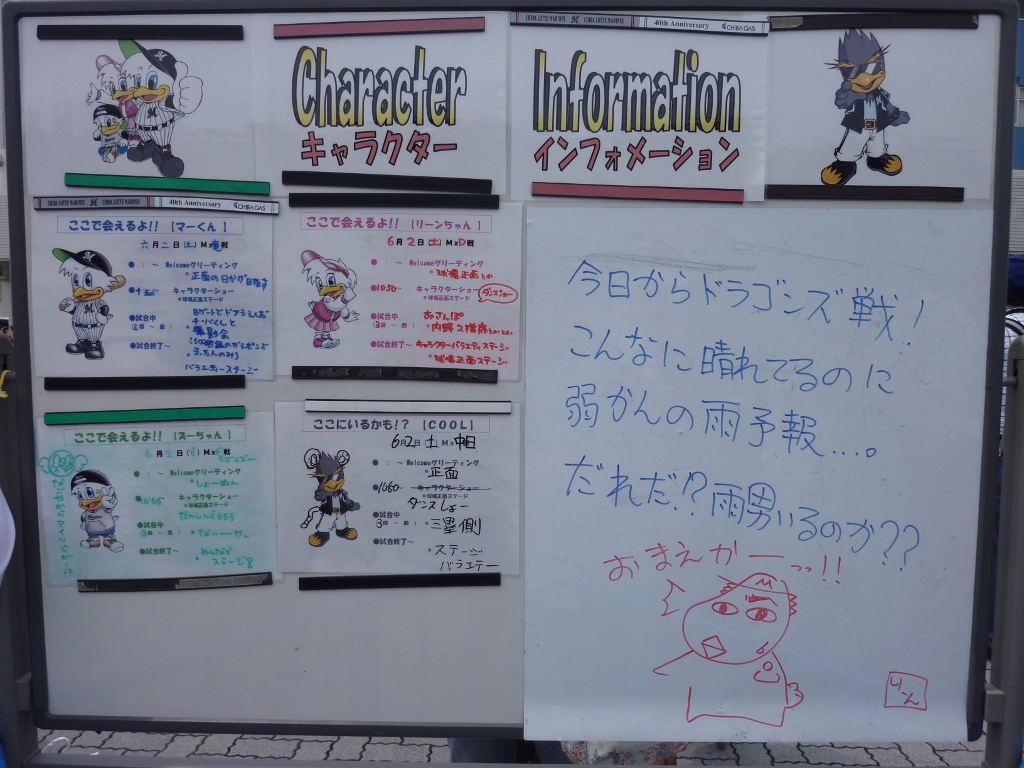 CHIBA LOTTE MARINES M CHIBA LOTTE MARINES 40th Anniversary CHIBA GAS
Character
キャラクター
Information
インフォメーション
CHIBA LOTTE MARINES M 40th Anniversary CHIBA GAS
ここで会えるよ!! 【マーくん】
六月二日(土) M×竜戦
● : ～ Welcomeグリーティング
*正面の日かげ目指す
キャラクターショー
*球場正面ステージ
●試合中
Bゲートでドアラさん&
チーバくんと
撮影会
●試合終了～
バラエティーステージ
ここで会えるよ!! 【リーンちゃん】
6月2日(土) M×D戦
● : ～ Welcomeグリーティング
*球場正面とか
●1050～ キャラクターショー ダンスショー
*球場正面ステージ
●試合中 おさんぽ
(3回～ 回) *内野2階席とかとか。
●試合終了～ *キャラクターバラエティステージ
*球場正面ステージ
ここで会えるよ!! 【ズーちゃん】
6月2日(土) M×ドラゴンズ戦
● : ～ Welcomeグリーティング
*しょーめん
キャラクターショー
*球場正面ステージ
だんしんぐううう
●試合中
●試合終了～ みんなで
*ステージ8
ここにいるかも!? 【COOL】
6月2日(土) M×中日
● : ～ Welcomeグリーティング
*正面
●1050～ キャラクターショー
*球場正面ステージ
ダンスしょー
●試合中
(3回～ 回) *三塁側
●試合終了～
*ステージ
バラエテー
今日からドラゴンズ戦!
こんなに晴れてるのに
弱かんの雨予報...。
だれだ!?雨男いるのか??
おまえかーっっ!!
M
りーん